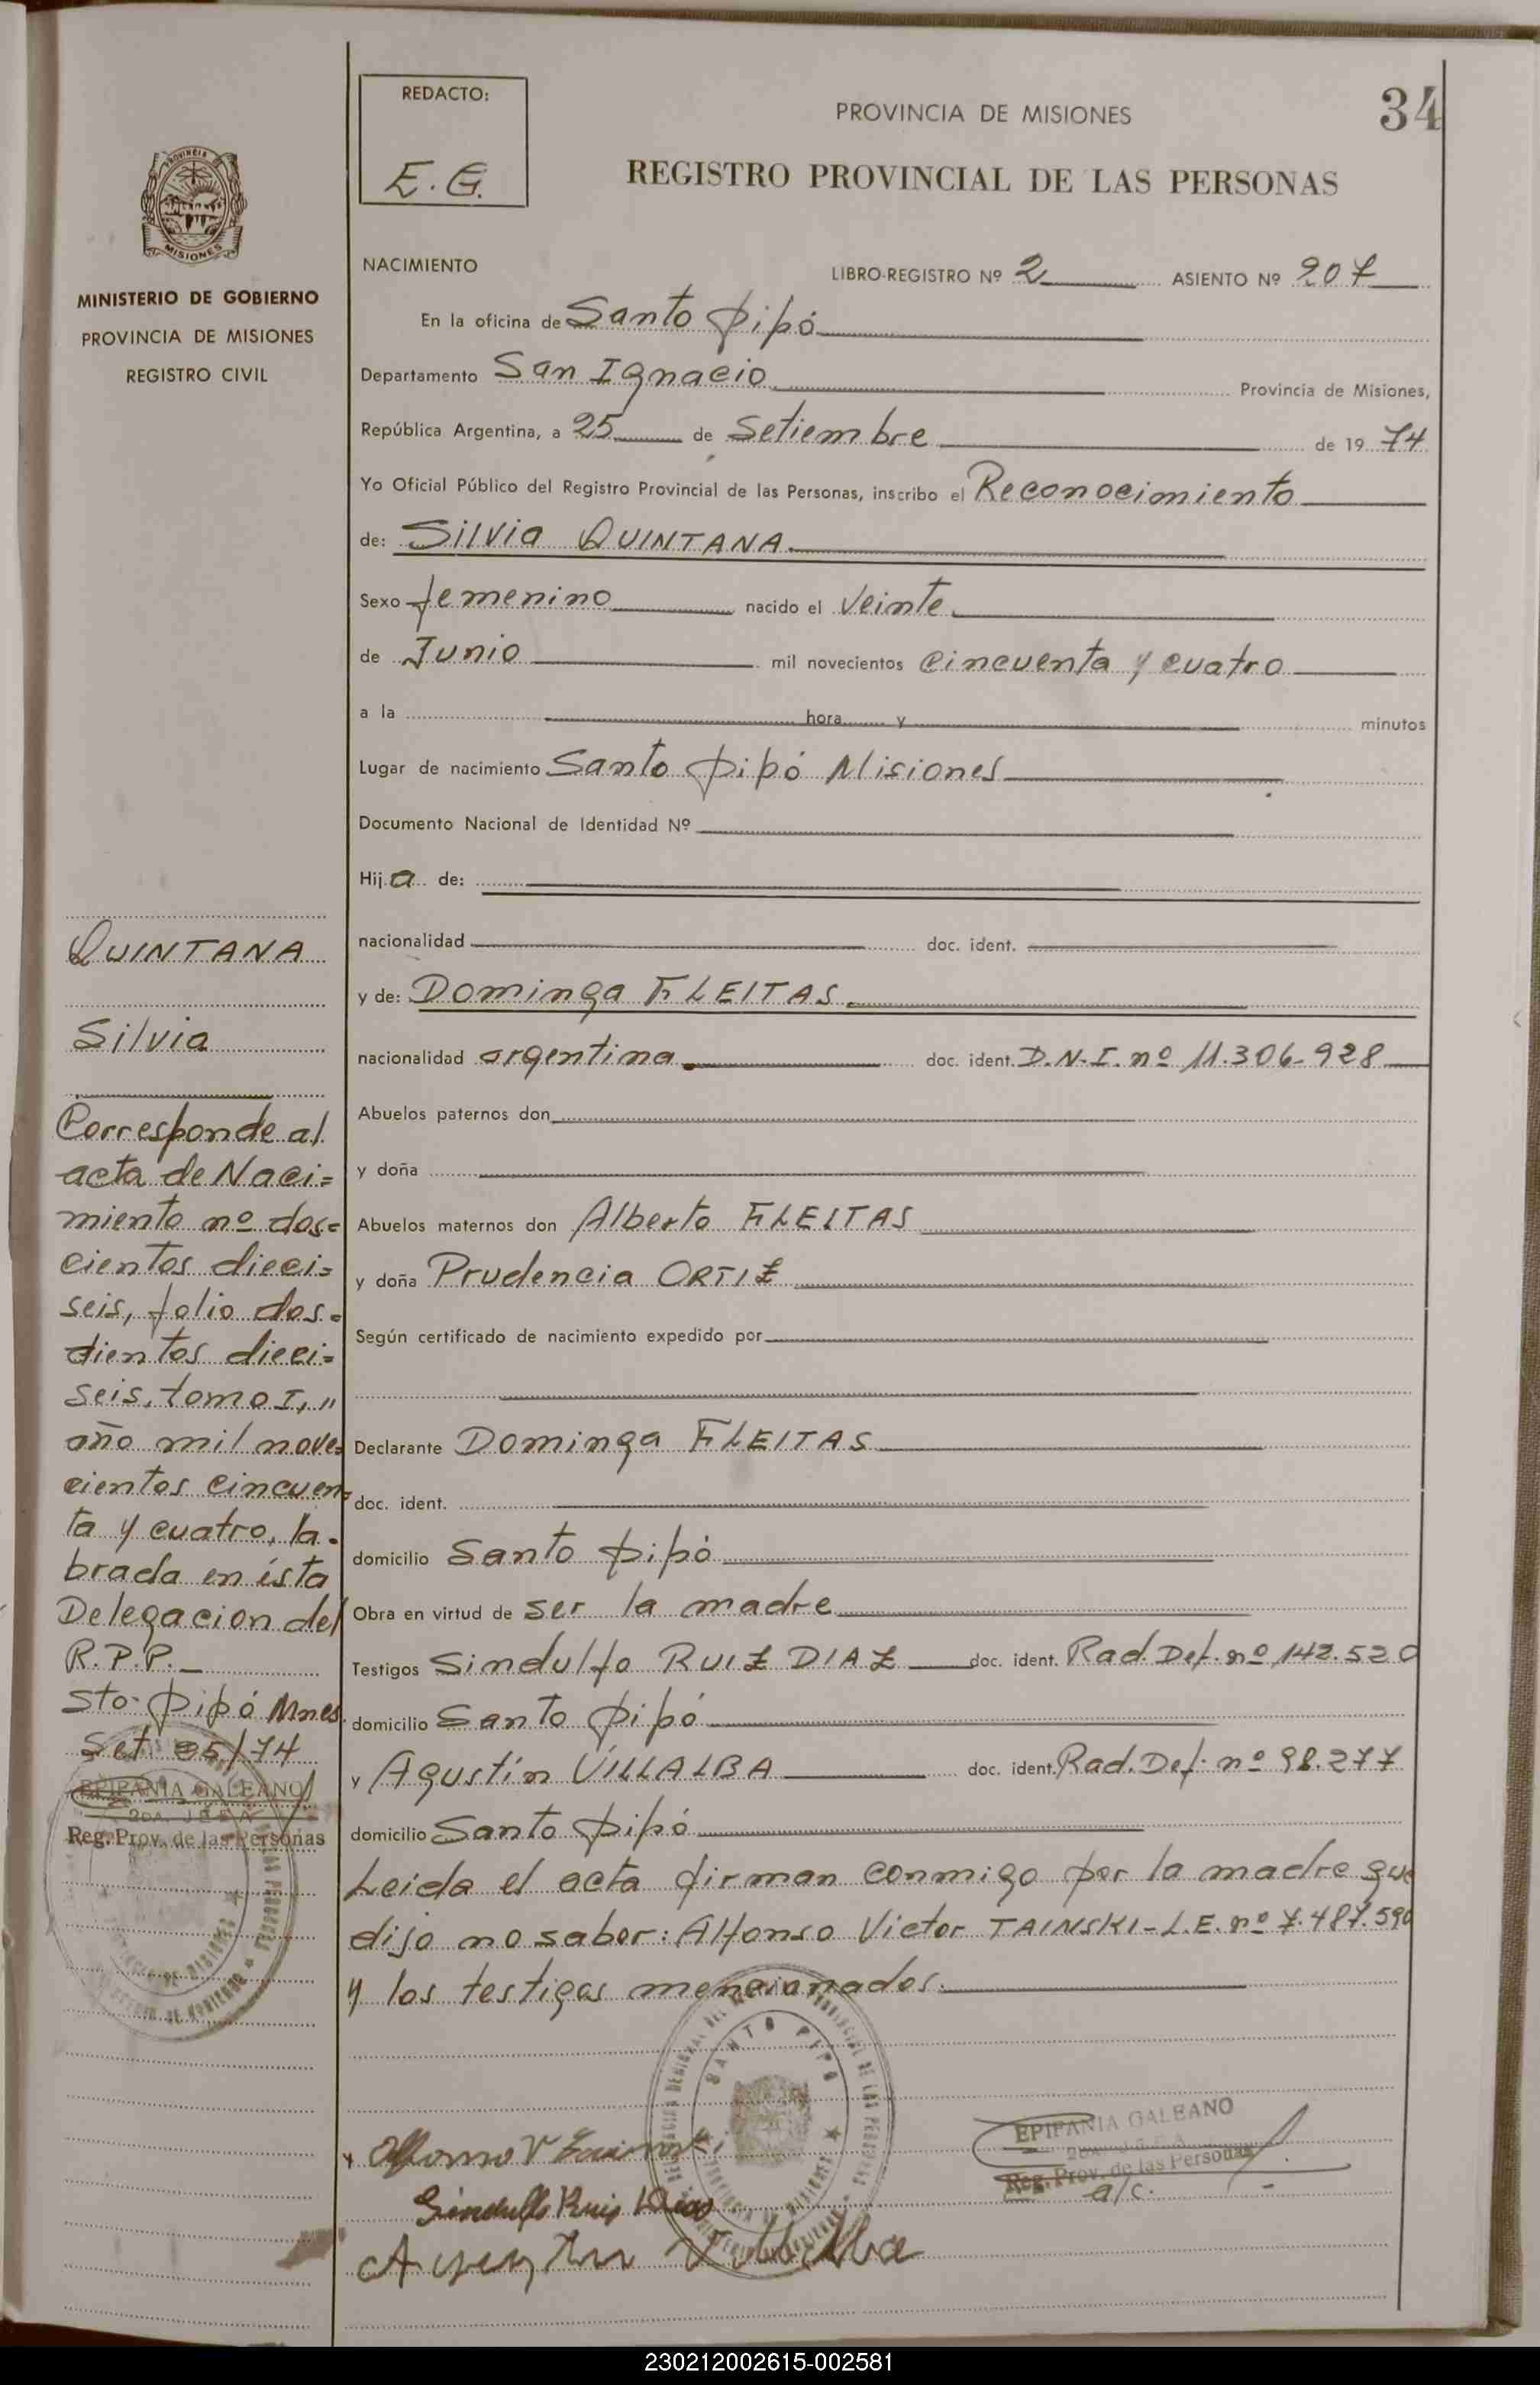 REDACTO:
E.G.
PROVINCIA DE MISIONES
34
REGISTRO PROVINCIAL DE LAS PERSONAS
PROVINCIA
MISIONES
MINISTERIO DE GOBIERNO
PROVINCIA DE MISIONES
REGISTRO CIVIL
NACIMIENTO
LIBRO-REGISTRO Nº 2 ASIENTO Nº 207
En la oficina de Santo Pipó
Departamento San Ignacio Provincia de Misiones,
República Argentina, a 25 de Setiembre de 1974
Yo Oficial Público del Registro Provincial de las Personas, inscribo el Reconocimiento
de: Silvia QUINTANA
Sexo femenino nacido el veinte
de Junio mil novecientos cincuenta y cuatro
a la hora y minutos
Lugar de nacimiento Santo Pipó Misiones
Documento Nacional de Identidad Nº
Hija de:
nacionalidad doc. ident.
y de: Dominga FLEITAS
nacionalidad argentina doc. ident. D.N.I. nº 11.306.928
Abuelos paternos don
y doña
Abuelos maternos don Alberto FLEITAS
y doña Prudencia ORTIZ
Según certificado de nacimiento expedido por
Declarante Dominga FLEITAS
doc. ident.
domicilio Santo Pipó
Obra en virtud de ser la madre
Testigos Sindulfo RUIZ DIAZ doc. ident. Rad. Def. nº 142.520
domicilio Santo Pipó
y Agustín VILLALBA doc. ident. Rad. Def. nº 98.277
domicilio Santo Pipó
Leida el acta firman conmigo por la madre que
dijo no saber: Alfonso Victor TAINSKI - L.E. nº 7.487.590
y los testigos mencionados.
QUINTANA
Silvia
Corresponde al
acta de Naci=
miento nº dos=
cientos dieci=
seis, folio dos=
cientos dieci=
seis, tomo I, "
año mil nove=
cientos cincuen=
ta y cuatro, la=
brada en ésta
Delegacion del
R.P.P.
Sto. Pipó Mnes.
Set. 25/74
EPIFANIA GALEANO
2DA. JEFA
Reg. Prov. de las Personas
SANTO PIPO
Alfonso V Tainski
Sindulfo Ruiz Diaz
Agustin Villalba
EPIFANIA GALEANO
2DA. JEFA
Reg. Prov. de las Personas
a/c.
230212002615-002581